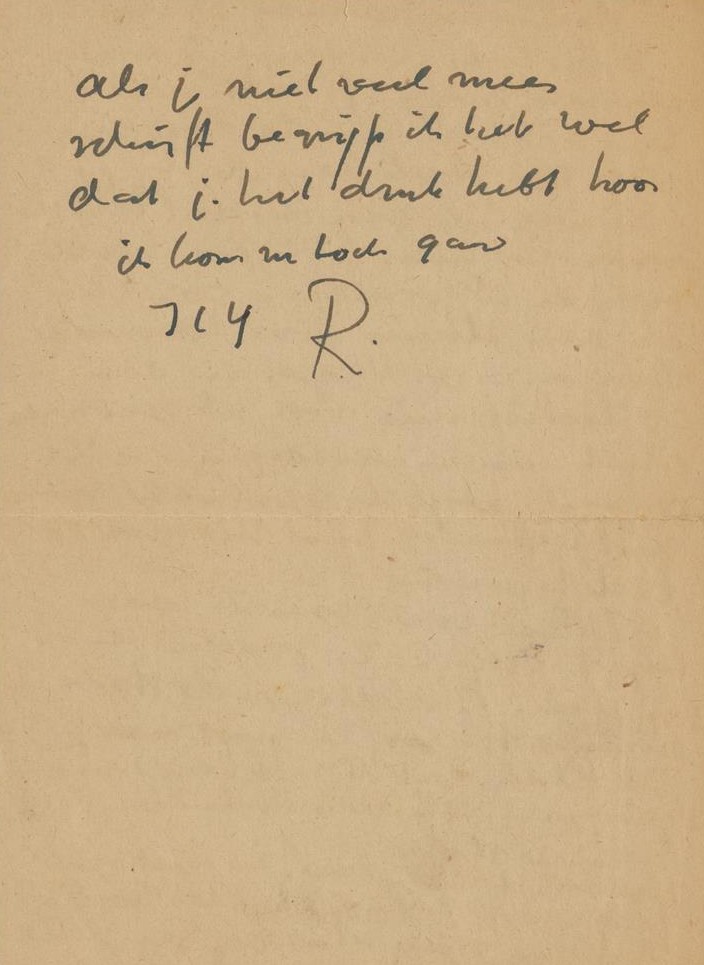 als je niet veel meer
schrijft begrijp ik het wel
dat je het druk hebt hoor
ik kom nu toch gauw
R.